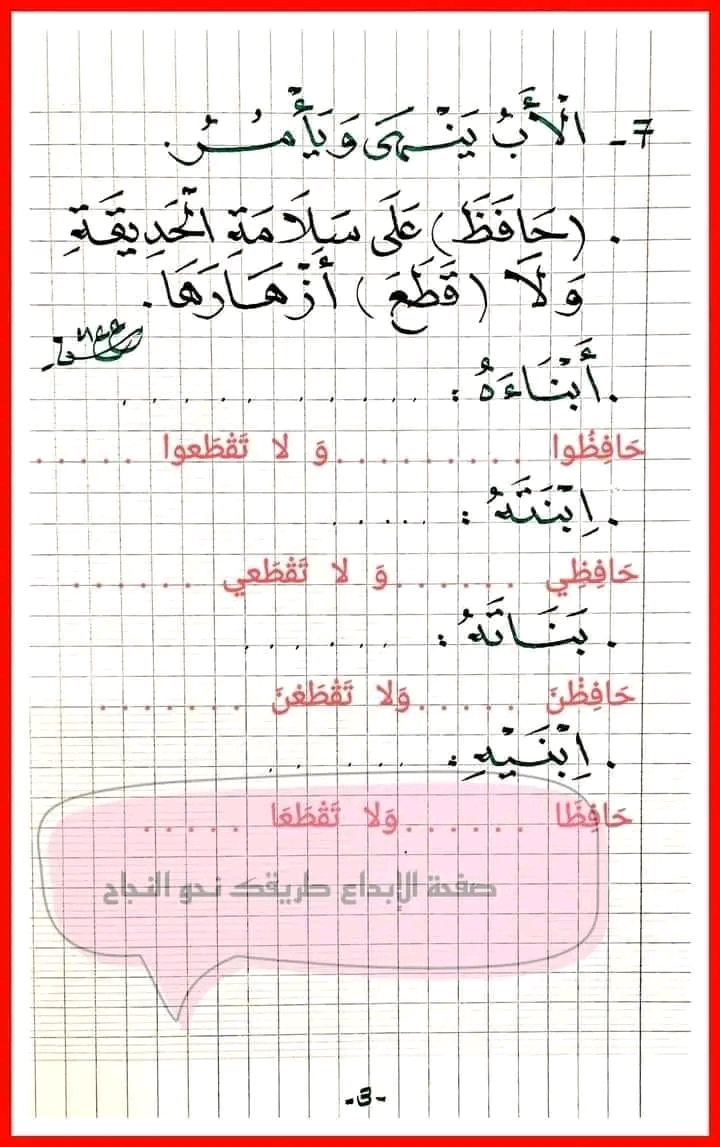 7- الْأَبُ يَنْهَى وَيَأْمُرُ.
. (حَافَظَ) عَلَى سَلَامَةِ الْحَدِيقَةِ
وَلَا (قَطَعَ) أَزْهَارَهَا.
. أَبْنَاءَهُ : . . . . . . . . . .
حَافِظُوا . . . . . . . . . . وَ لا تَقْطَعوا . . . . .
. اِبْنَتَهُ : . . . . .
حَافِظِي . . . . . . وَ لا تَقْطَعي . . . . . .
. بَنَاتَهُ : . . . . . .
حَافِظْنَ . . . . . وَلا تَقْطَعْنَ . . . . . . .
. اِبْنَيْهِ : . . . . . .
حَافِظَا . . . . . . وَلا تَقْطَعَا . . . . .
صفحة الإبداع طريقك نحو النجاح
-3-